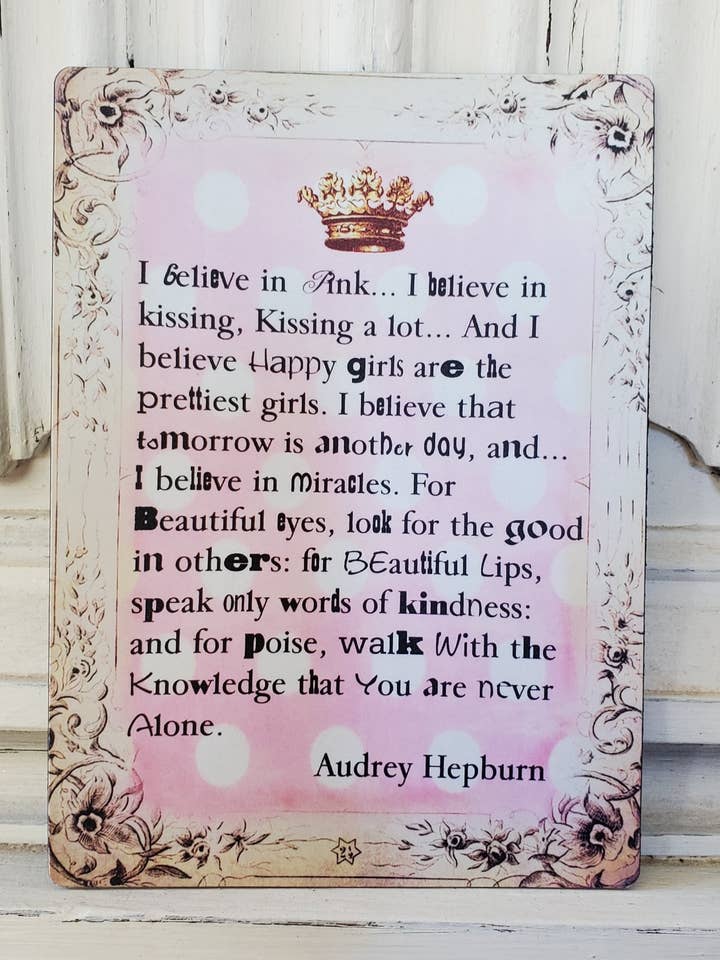 I Believe in Pink... I believe in
kissing, Kissing a lot... And I
believe Happy girls are the
prettiest girls. I believe that
tomorrow is another day, and...
I believe in Miracles. For
Beautiful eyes, look for the good
in others: for BEautiful Lips,
speak only words of kindness:
and for poise, walk With the
Knowledge that You are never
Alone.
Audrey Hepburn
21